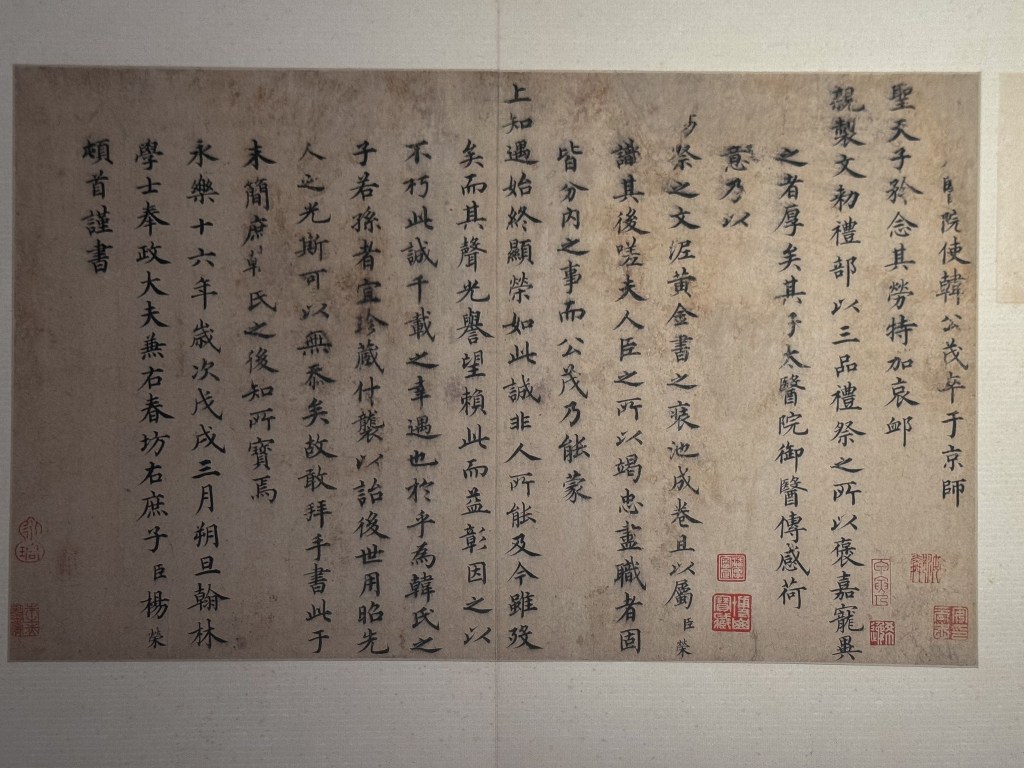 院使韓公茂卒于京師
聖天子矜念其勞特加哀卹
親製文勑禮部以三品禮祭之所以褒嘉寵異
之者厚矣其子太醫院御醫傳感荷
意乃以
祭之文泥黃金書之裝池成卷且以屬臣榮
識其後嗟夫人臣之所以竭忠盡職者固
皆分內之事而公茂乃能蒙
上知遇始終顯榮如此誠非人所能及今雖歿
矣而其聲光譽望賴此而益彰因之以
不朽此誠千載之幸遇也於乎為韓氏之
子若孫者宜珍藏付襲以詒後世用昭先
人之光斯可以無忝矣故敢拜手書此于
末簡庶 氏之後知所寶焉
永樂十六年歲次戊戌三月朔旦翰林
學士奉政大夫兼右春坊右庶子臣楊榮
頓首謹書